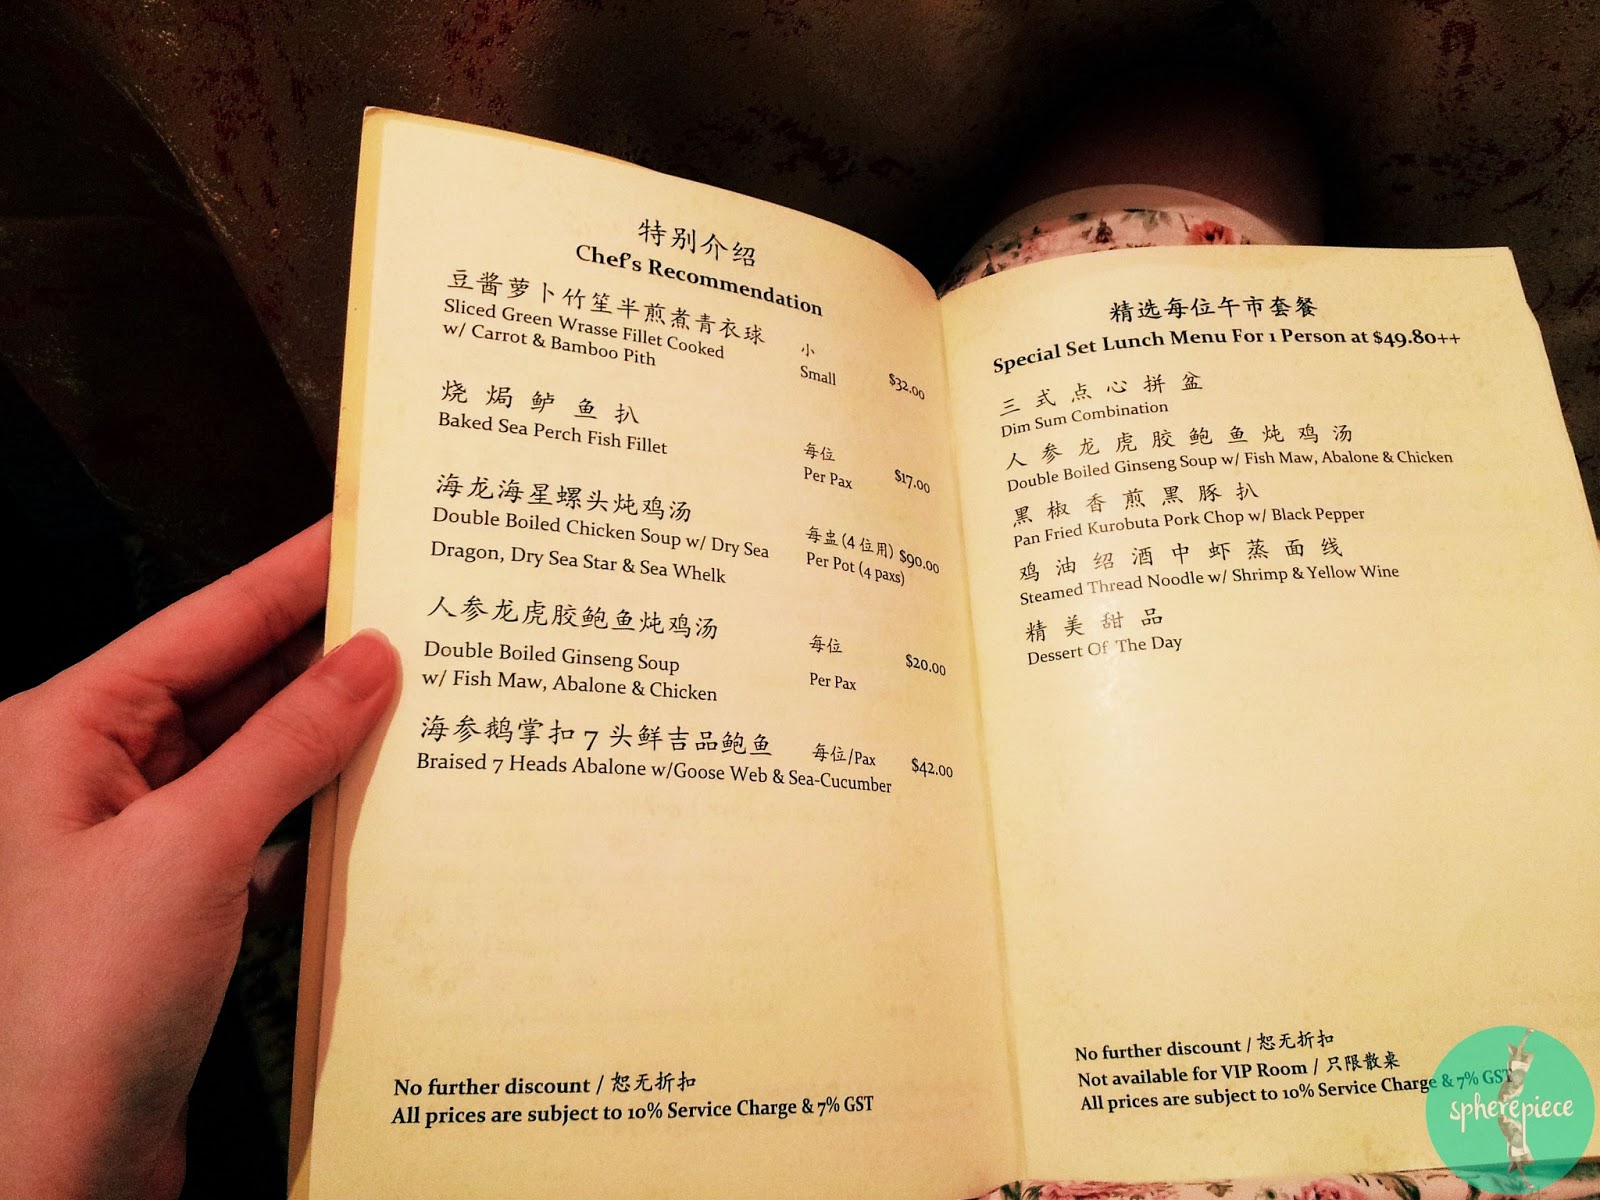 特别介绍
Chef's Recommendation
豆酱萝卜竹笙半煎煮青衣球
Sliced Green Wrasse Fillet Cooked
w/ Carrot & Bamboo Pith
小
Small $32.00
烧焗鲈鱼扒
Baked Sea Perch Fish Fillet
每位
Per Pax $17.00
海龙海星螺头炖鸡汤
Double Boiled Chicken Soup w/ Dry Sea
Dragon, Dry Sea Star & Sea Whelk
每盅(4位用) $90.00
Per Pot (4 paxs)
人参龙虎胶鲍鱼炖鸡汤
Double Boiled Ginseng Soup
w/ Fish Maw, Abalone & Chicken
每位
Per Pax $20.00
海参鹅掌扣7头鲜吉品鲍鱼 每位/Pax $42.00
Braised 7 Heads Abalone w/Goose Web & Sea-Cucumber
No further discount / 恕无折扣
All prices are subject to 10% Service Charge & 7% GST
精选每位午市套餐
Special Set Lunch Menu For 1 Person at $49.80++
三式点心拼盆
Dim Sum Combination
人参龙虎胶鲍鱼炖鸡汤
Double Boiled Ginseng Soup w/ Fish Maw, Abalone & Chicken
黑椒香煎黑豚扒
Pan Fried Kurobuta Pork Chop w/ Black Pepper
鸡油绍酒中虾蒸面线
Steamed Thread Noodle w/ Shrimp & Yellow Wine
精美甜品
Dessert Of The Day
No further discount / 恕无折扣
Not available for VIP Room / 只限散桌
All prices are subject to 10% Service Charge & 7% GST
spherepiece